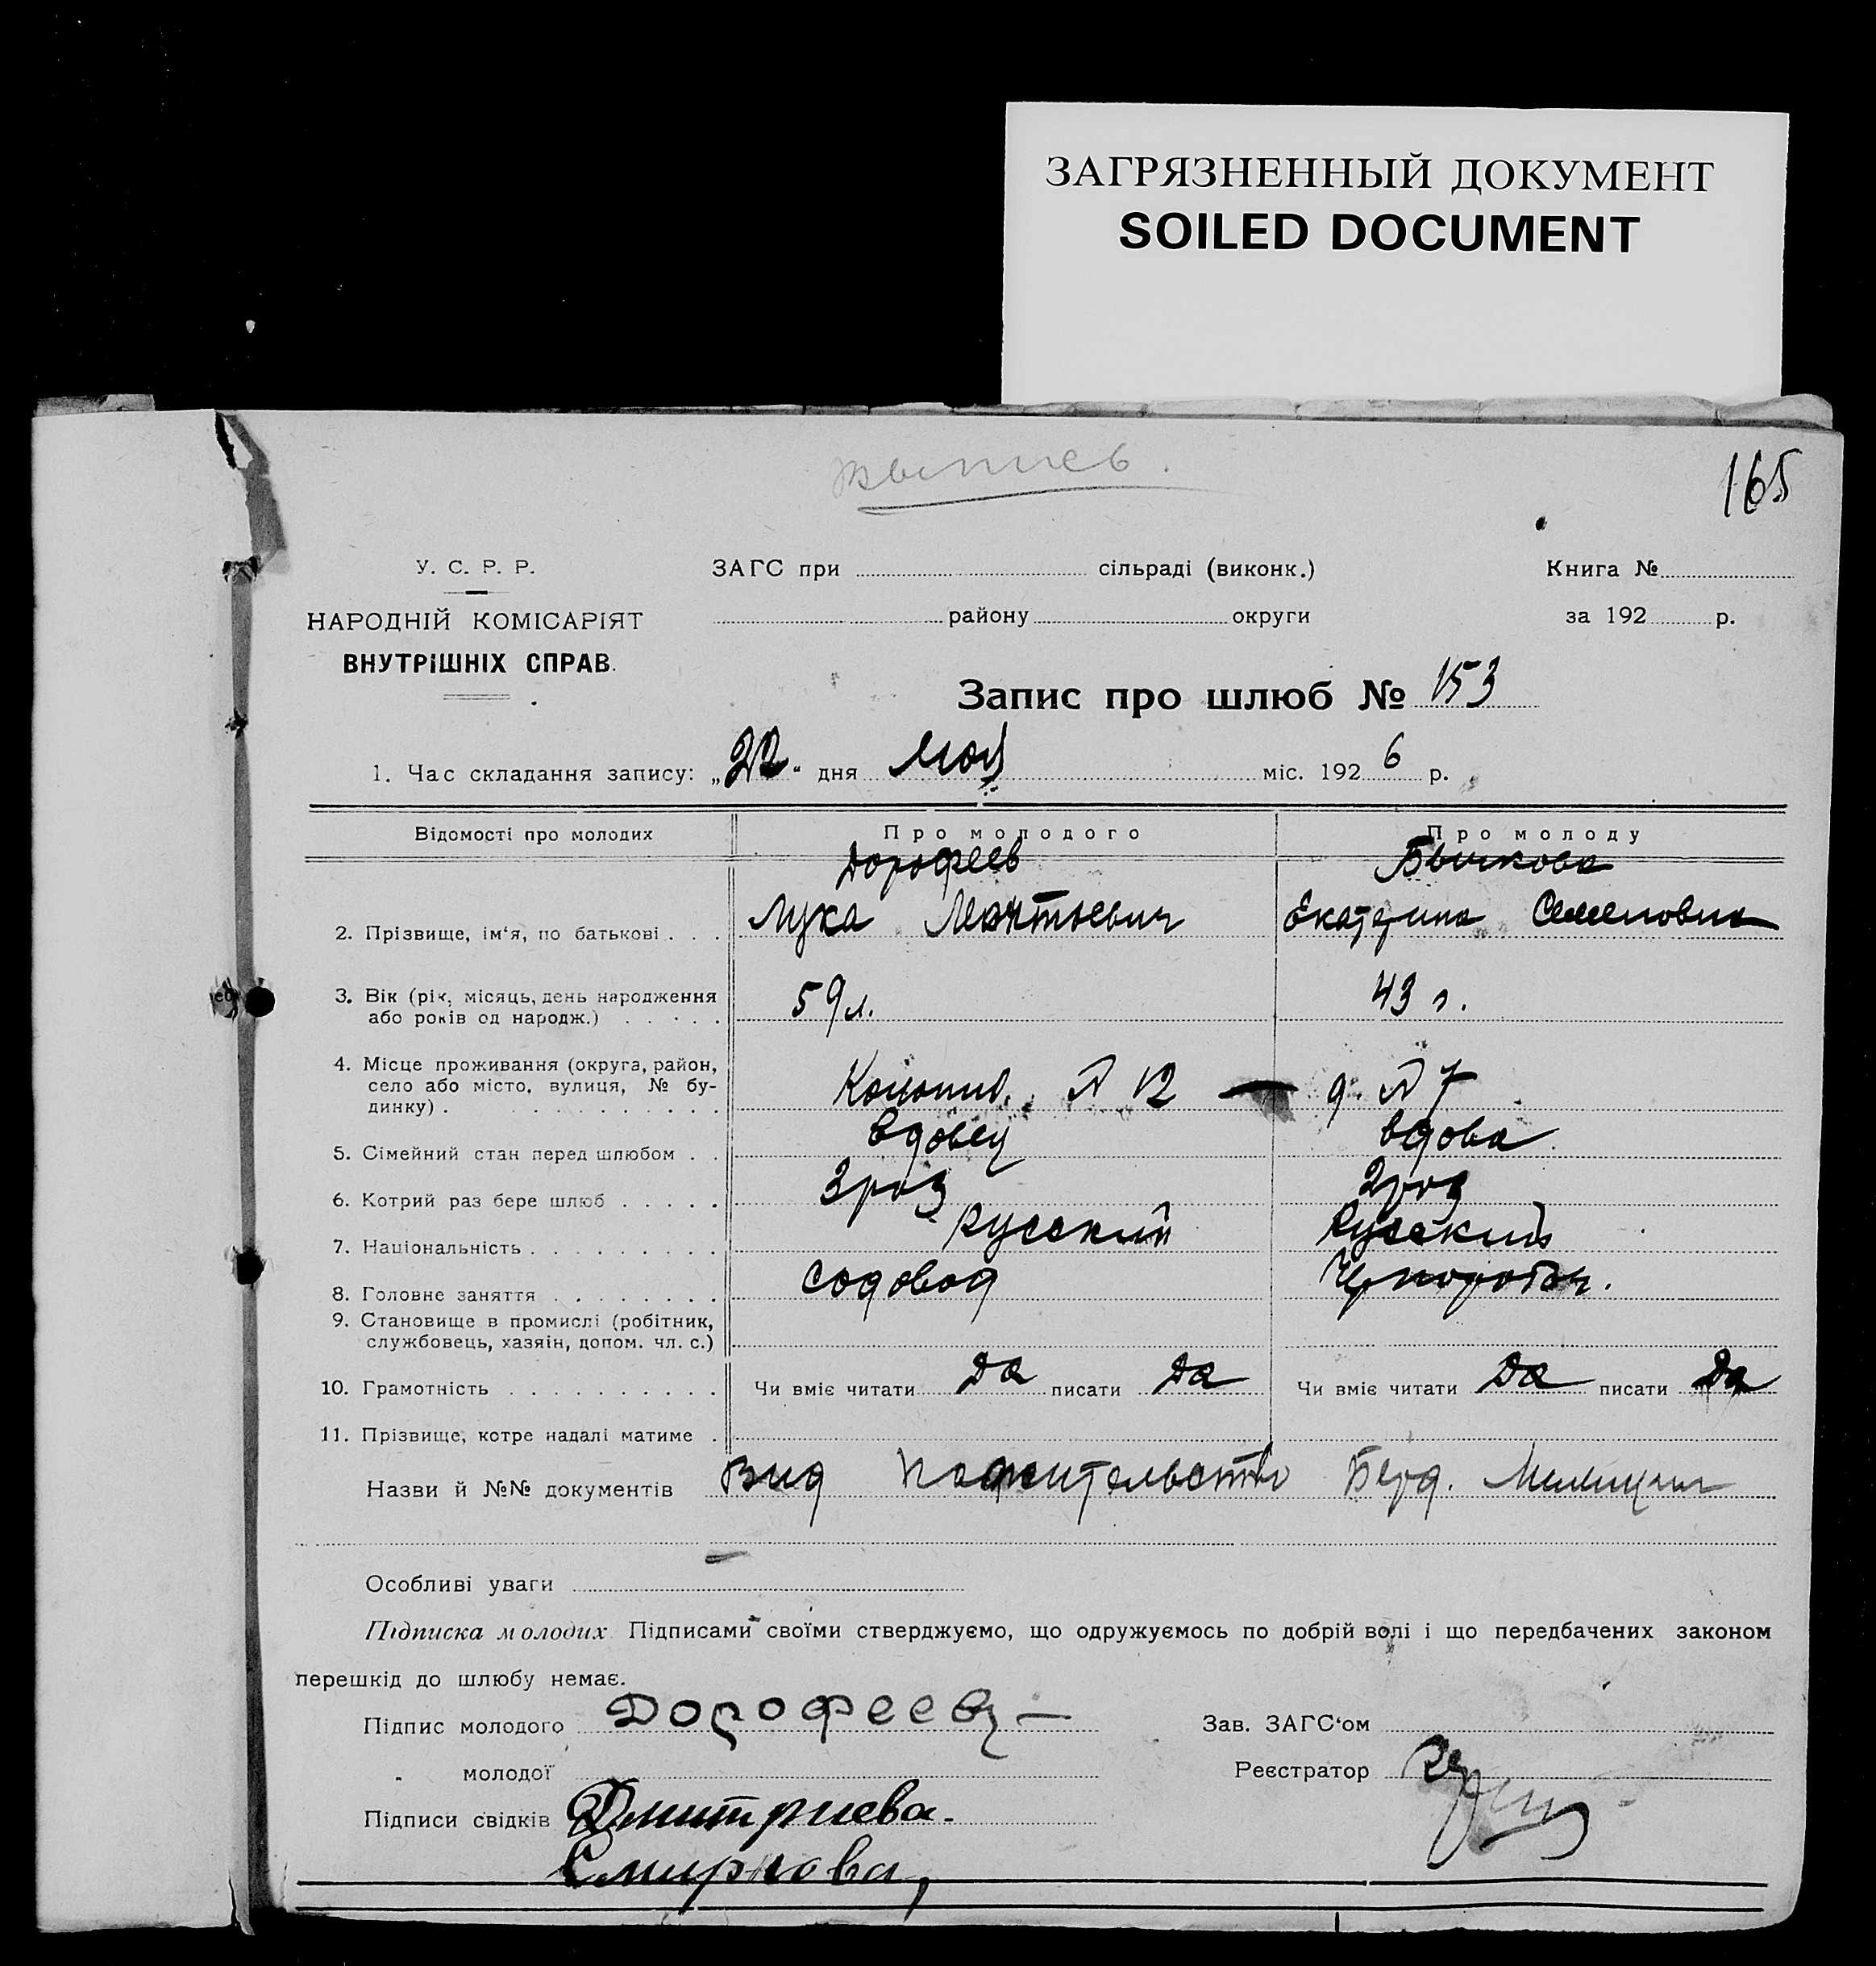 ЗАГРЯЗНЕННЫЙ ДОКУМЕНТ
SOILED DOCUMENT
выпись.
165
У. С. Р. Р.
НАРОДНІЙ КОМІСАРІЯТ
ВНУТРІШНІХ СПРАВ.
ЗАГС при сільраді (виконк.)
району округи
Книга №
за 192 р.
Запис про шлюб № 153
1. Час складання запису: „22“ дня мая міс. 1926 р.
Відомості про молодих Про молодого Про молоду
Дорофеев Бычкова
2. Прізвище, ім‘я, по батькові . . . Лука Екатерина Семеновна
3. Вік (рік, місяць, день народження 59 л. 43 г.
або років од народж.) . . . . .
4. Місце проживання (округа, район,
село або місто, вулиця, № бу-
динку) . . . . . . . . . . . № 12 — д. № 7
5. Сімейний стан перед шлюбом . . вдовец вдова
6. Котрий раз бере шлюб . . . . . 3 раз 2 раз
7. Національність . . . . . . . . . русский Русский
8. Головне заняття . . . . . . . . садовод
9. Становище в промислі (робітник,
службовець, хазяїн, допом. чл. с.)
10. Грамотність . . . . . . . . . . Чи вміє читати да писати да Чи вміє читати да писати да
11. Прізвище, котре надалі матиме .
Назви й №№ документів Вид на жительство Берд. Милиции
Особливі уваги
Підписка молодих Підписами своїми стверджуємо, що одружуємось по добрій волі і що передбачених законом
перешкід до шлюбу немає.
Підпис молодого Дорофеевъ Зав. ЗАГС‘ом
молодої Реєстратор
Підписи свідків Дмитриева.
Смирнова,